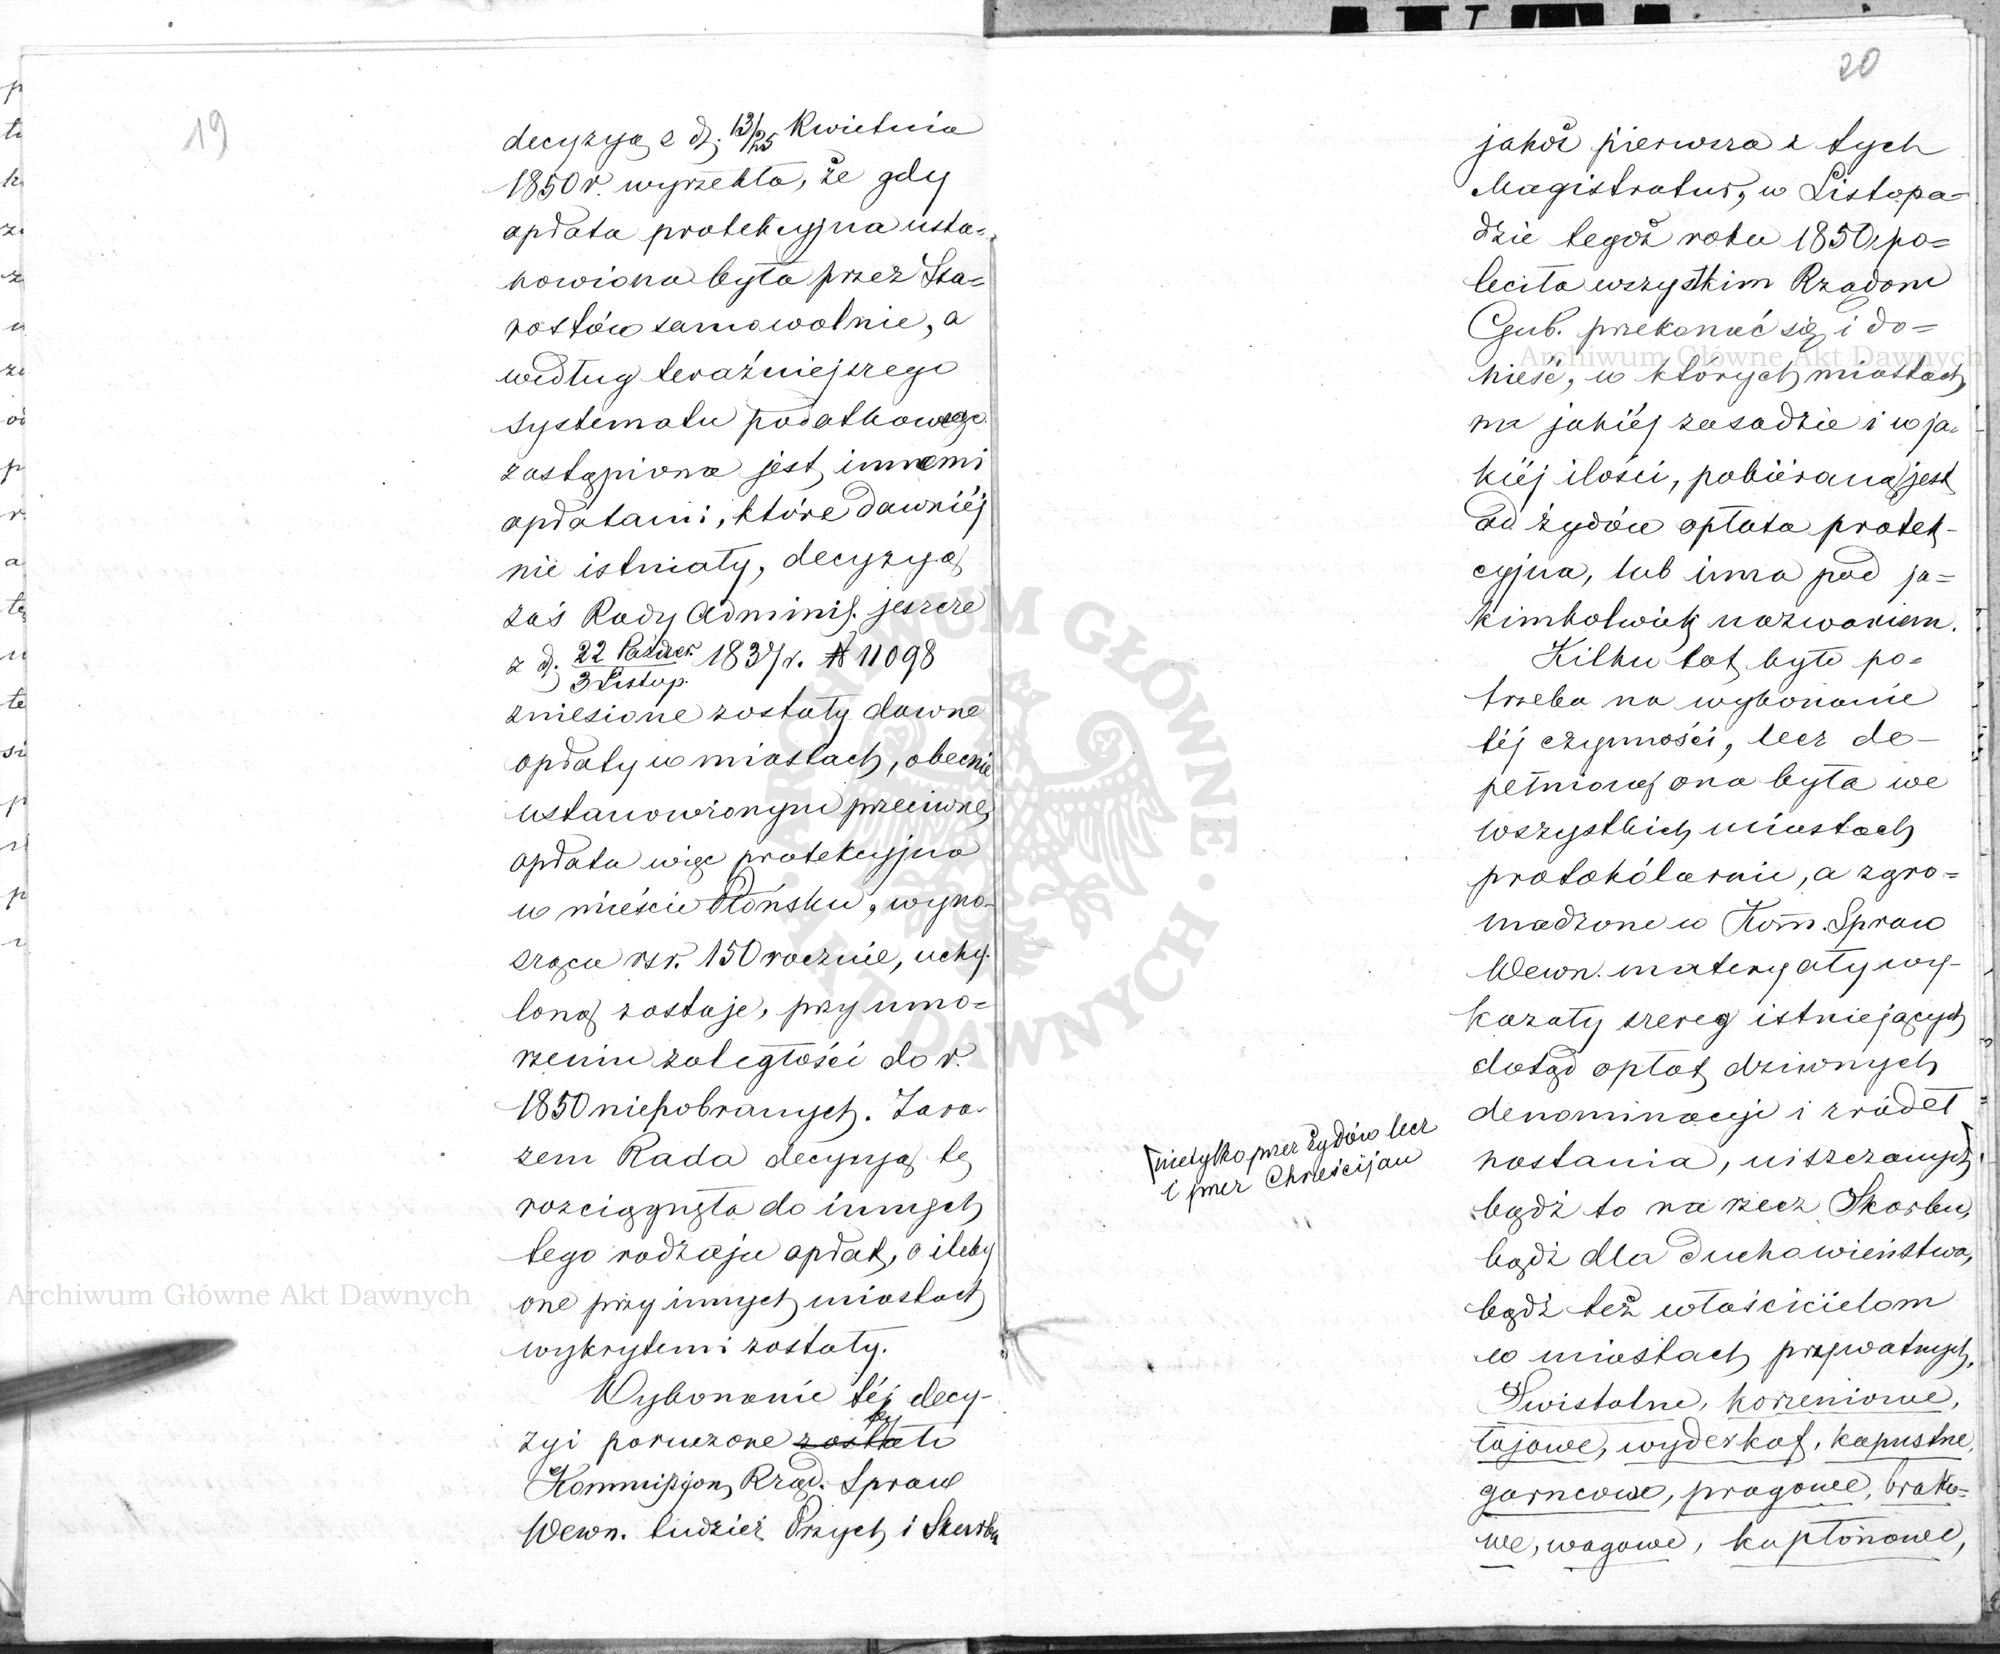 19
decyzyą z d. 13/25 Kwietnia
1850 r. wyrzekła, że gdy
opłata protekcyjna usta=
nowiona była przez Sta=
rostów samowolnie, a
według teraźniejszego
systematu podatkowego
zastąpiona jest innemi
opłatami, które dawniéj
nie istniały, decyzyą
zaś Rady Adminis. jeszcze
z d. 22 Paździer. / 3 Listop. 1837 r. N 11098
zniesione zostały dawne
opłaty w miastach, obecnie
ustanowionym przeciwne,
opłata więc protekcyjna
w mieście Płońsku, wyno=
sząca rsr. 150 rocznie, uchy=
loną zostaje, przy umo=
rzeniu zaległości do r.
1850 niepobranych. Zara=
zem Rada decyzyą tę
rozciągnęła do innych
tego rodzaju opłat, o ileby
one przy innych miastach
wykrytemi zostały.
Wykonanie téj decy-
zyi poruczone zostało
Kommissyom Rząd. Spraw
Wewn. tudzież Przych i Skarbu
20
jakoż pierwsza z tych
Magistratur, w Listopa=
dzie tegoż roku 1850, po=
leciła wszystkim Rządom
Gub. przekonać się i do=
nieść, w których miastach,
na jakiéj zasadzie i w ja=
kiéj ilości, pobiéraną jest
od żydów opłata protek-
cyjna, lub inna pod ja=
kimkolwiek nazwaniem.
Kilku lat było po=
trzeba na wykonanie
téj czynności, lecz do-
pełnioną ona była we
wszystkich miastach
protokólarnie, a zgro=
madzone w Kom. Spraw
Wewn. materyały wy-
kazały szereg istniejących
dotąd opłat dziwnych
denominacyi i źródeł
nietylko przez żydów lecz
i przez Chrześcijan
postania, uiszczanych
bądź to na rzecz Skarbu,
bądź dla Duchowieństwa,
bądź też właścicielom
w miastach prywatnych.
Świstalne, korzeniowe,
łojowe, wyderkaf, kapustne,
garncowe, progowe, brako=
we, wagowe, kapłonowe,
Archiwum Główne Akt Dawnych
Archiwum Główne Akt Dawnych
ARCHIWUM GŁÓWNE AKT DAWNYCH